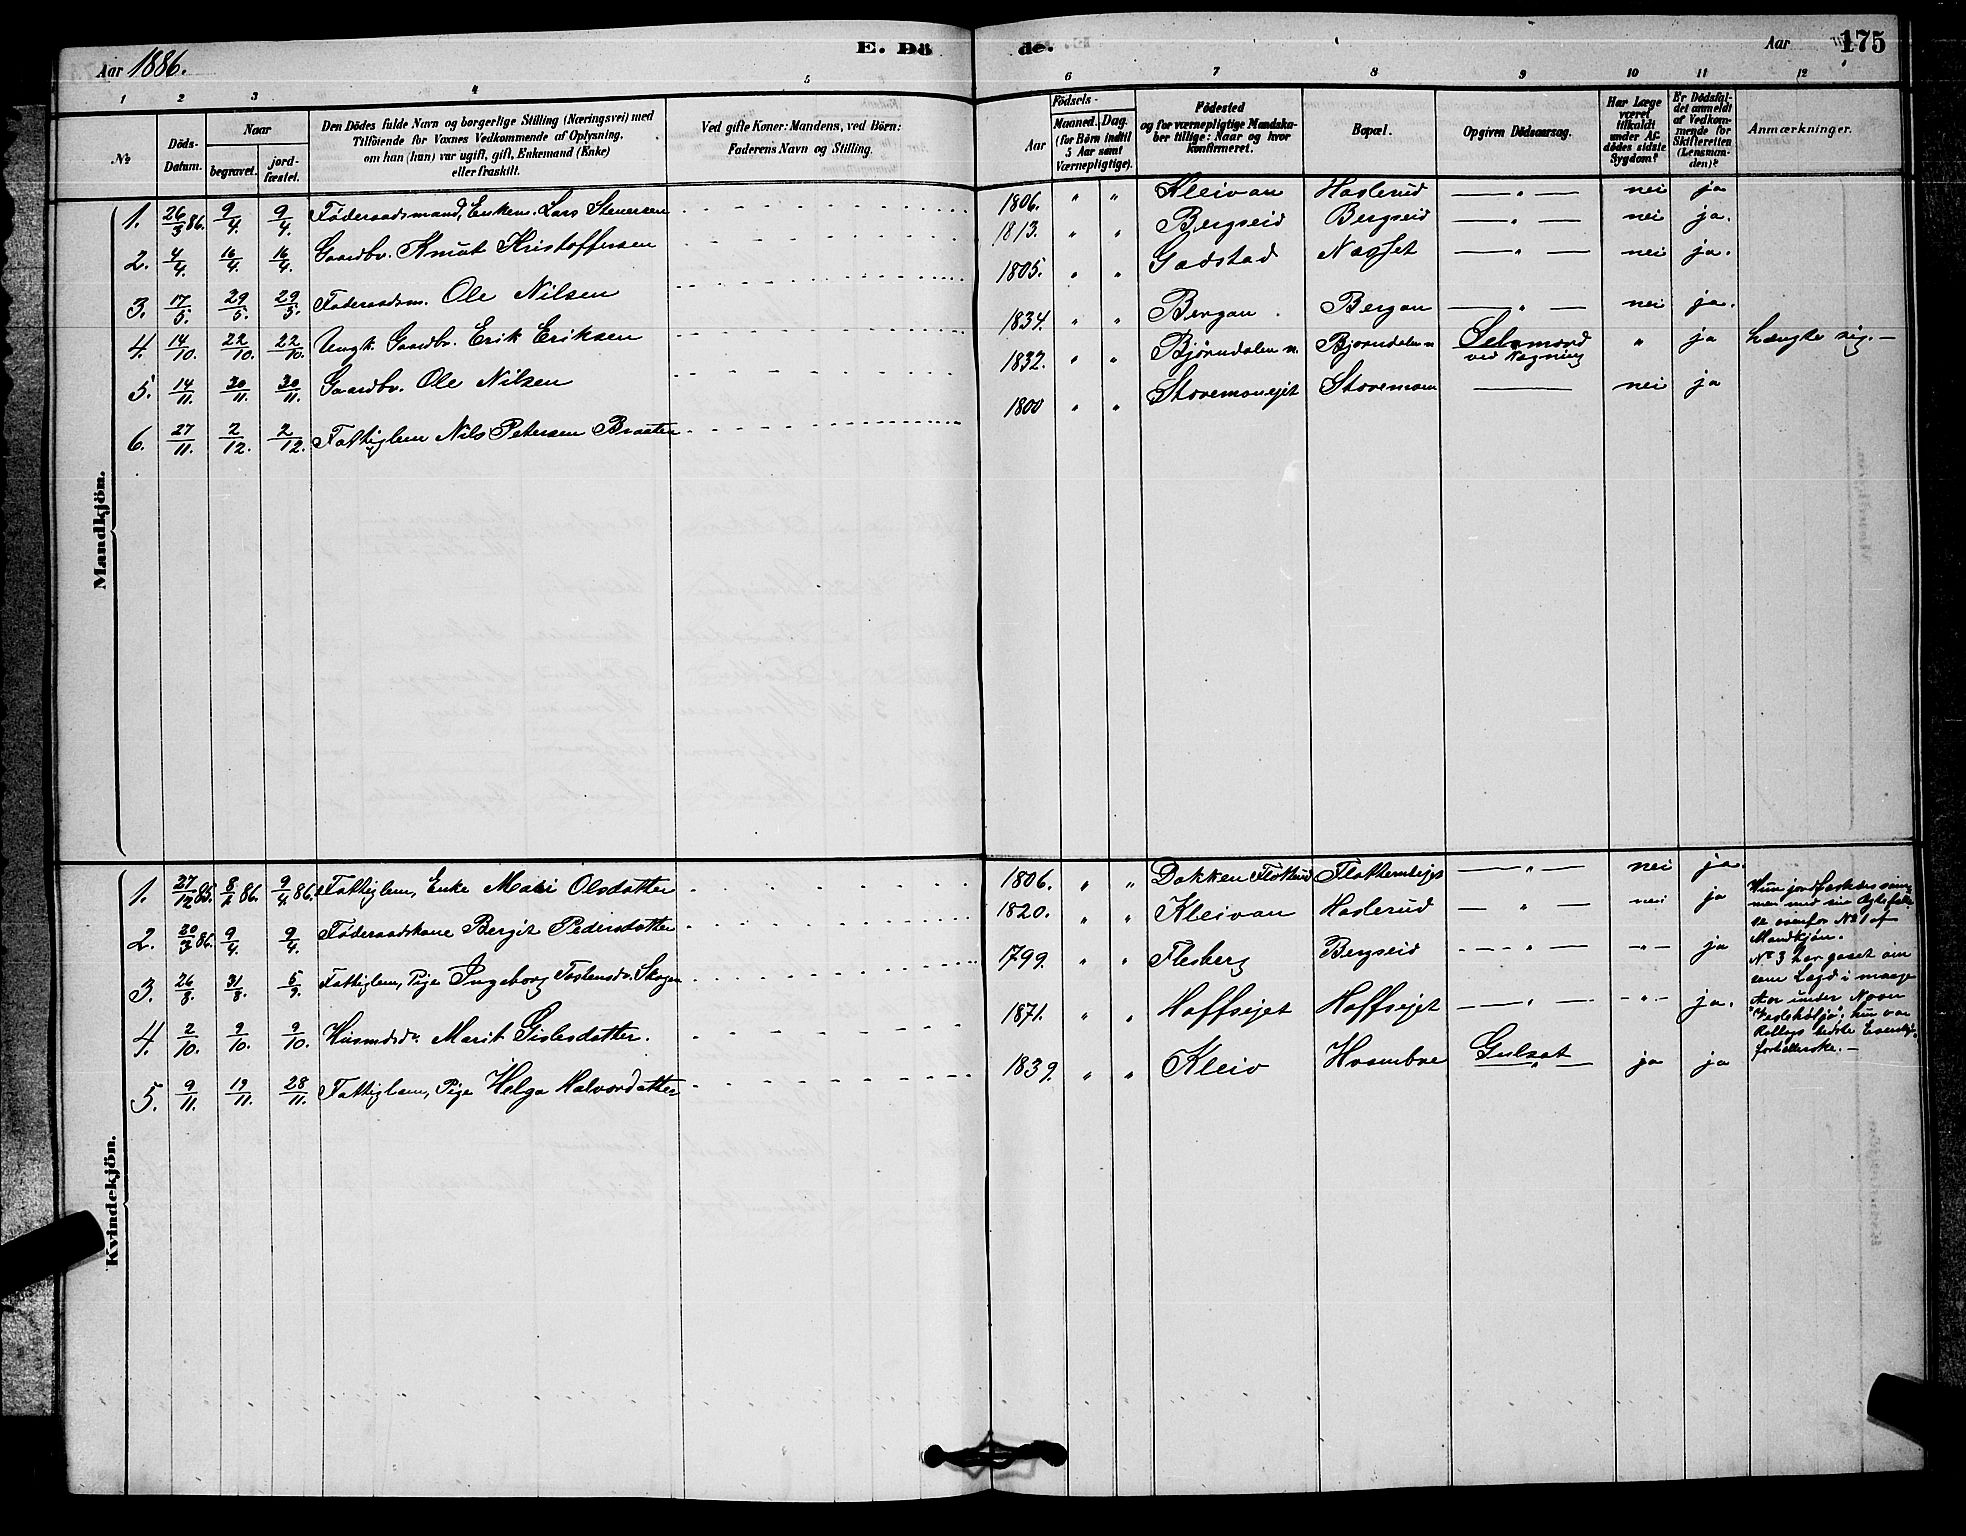 Aar 1886. E. Dö de. Aar 175
1 2 3 4 5 6 7 8 9 10 11 12
No Döds-Datum. Naar begravet. jord-fæstet. Den Dödes fulde Navn og borgerlige Stilling (Næringsvei) med Tilföiende for Voxnes Vedkommende af Oplysning, om han (hun) var ugift, gift, Enkemand (Enke) eller fraskilt. Ved gifte Koner: Mandens, ved Börn: Faderens Navn og Stilling. Födsels- Aar Maaned. Dag. (for Börn indtil 5 Aar samt Værnepligtige). Födested og for værnepligtige Mandskaber tillige: Naar og hvor konfirmeret. Bopæl. Opgiven Dödsaarsag. Har Læge været tilkaldt under Afdödes sidste Sygdom? Er Dödsfaldet anmeldt af Vedkommende for Skifteretten (Lensmanden)? Anmærkninger.
Mandkjön.
1. 26/3 86. 9/4. 9/4. Föderaadsmand, Enkem. Lars Stenersen 1806. " " Kleivan Haslerud — " — nei ja
2. 4/4. 16/4. 16/4. Gaardbr. Knut Kristoffersen 1813. " " Bergseid Bergseid — " — nei ja.
3. 17/5. 29/5. 29/5. Föderaadsm. Ole Nilsen 1805. " " Gadstad — " — nei ja.
4. 14/10. 22/10. 22/10. Ungk. Gaardbr. Erik Eriksen 1834. " " Bergan Bergan — " — nei ja.
5. 14/11. 30/11. 30/11. Gaardbr. Ole Nilsen 1832. " " Bjørndalen Bjørndalen Selvmord ved Hægning " ja hængte sig. —
6. 27/11. 2/12. 2/12. Fattiglem Nils Petersen Braaten 1800 " " Storemoen — nei ja
Kvindekjön.
1. 27/12 85. 86. 9/4 86. Fattiglem, Enke Mari Olsdatter 1806. " " Dokken — " — nei ja.
2. 20/3 86. 9/4 9/4. Föderaadskone Bergit Pedersdatter 1820. " " Kleivan Haslerud — " — nei ja Hun jordfæstedes sammen med sin Ægtefælle ovenfor No 1 af Mandkjön.
3. 26/8. 31/8. 5/9. Fattiglem, Pige Ingeborg Skogen 1799. " " Flesberg Bergseid — " — " ja No 3 har gaaet om som Lægd i mange Aar under Navn hun var Rollags bedste
4. 2/10. 9/10. 9/10. Husmdsd. Marit Gislesdatter. 1871. " " Hoffsejet Hoffsejet — " — " ja.
5. 9/11. 19/11. 28/11. Fattiglem, Pige Helga Halvordatter 1839. " " Kleiv Gulsot ja ja